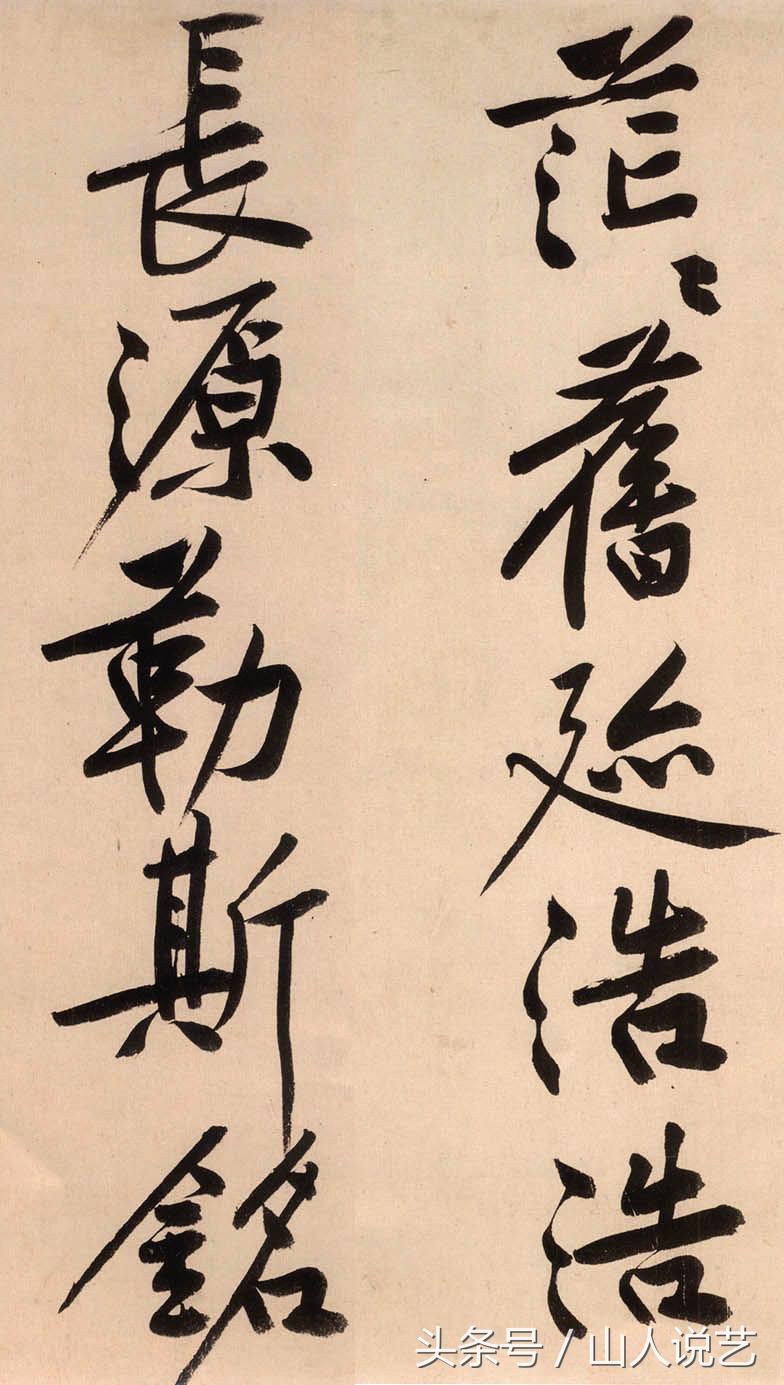 茫〻舊迹浩浩
長源勒斯銘
头条号 / 山人说艺